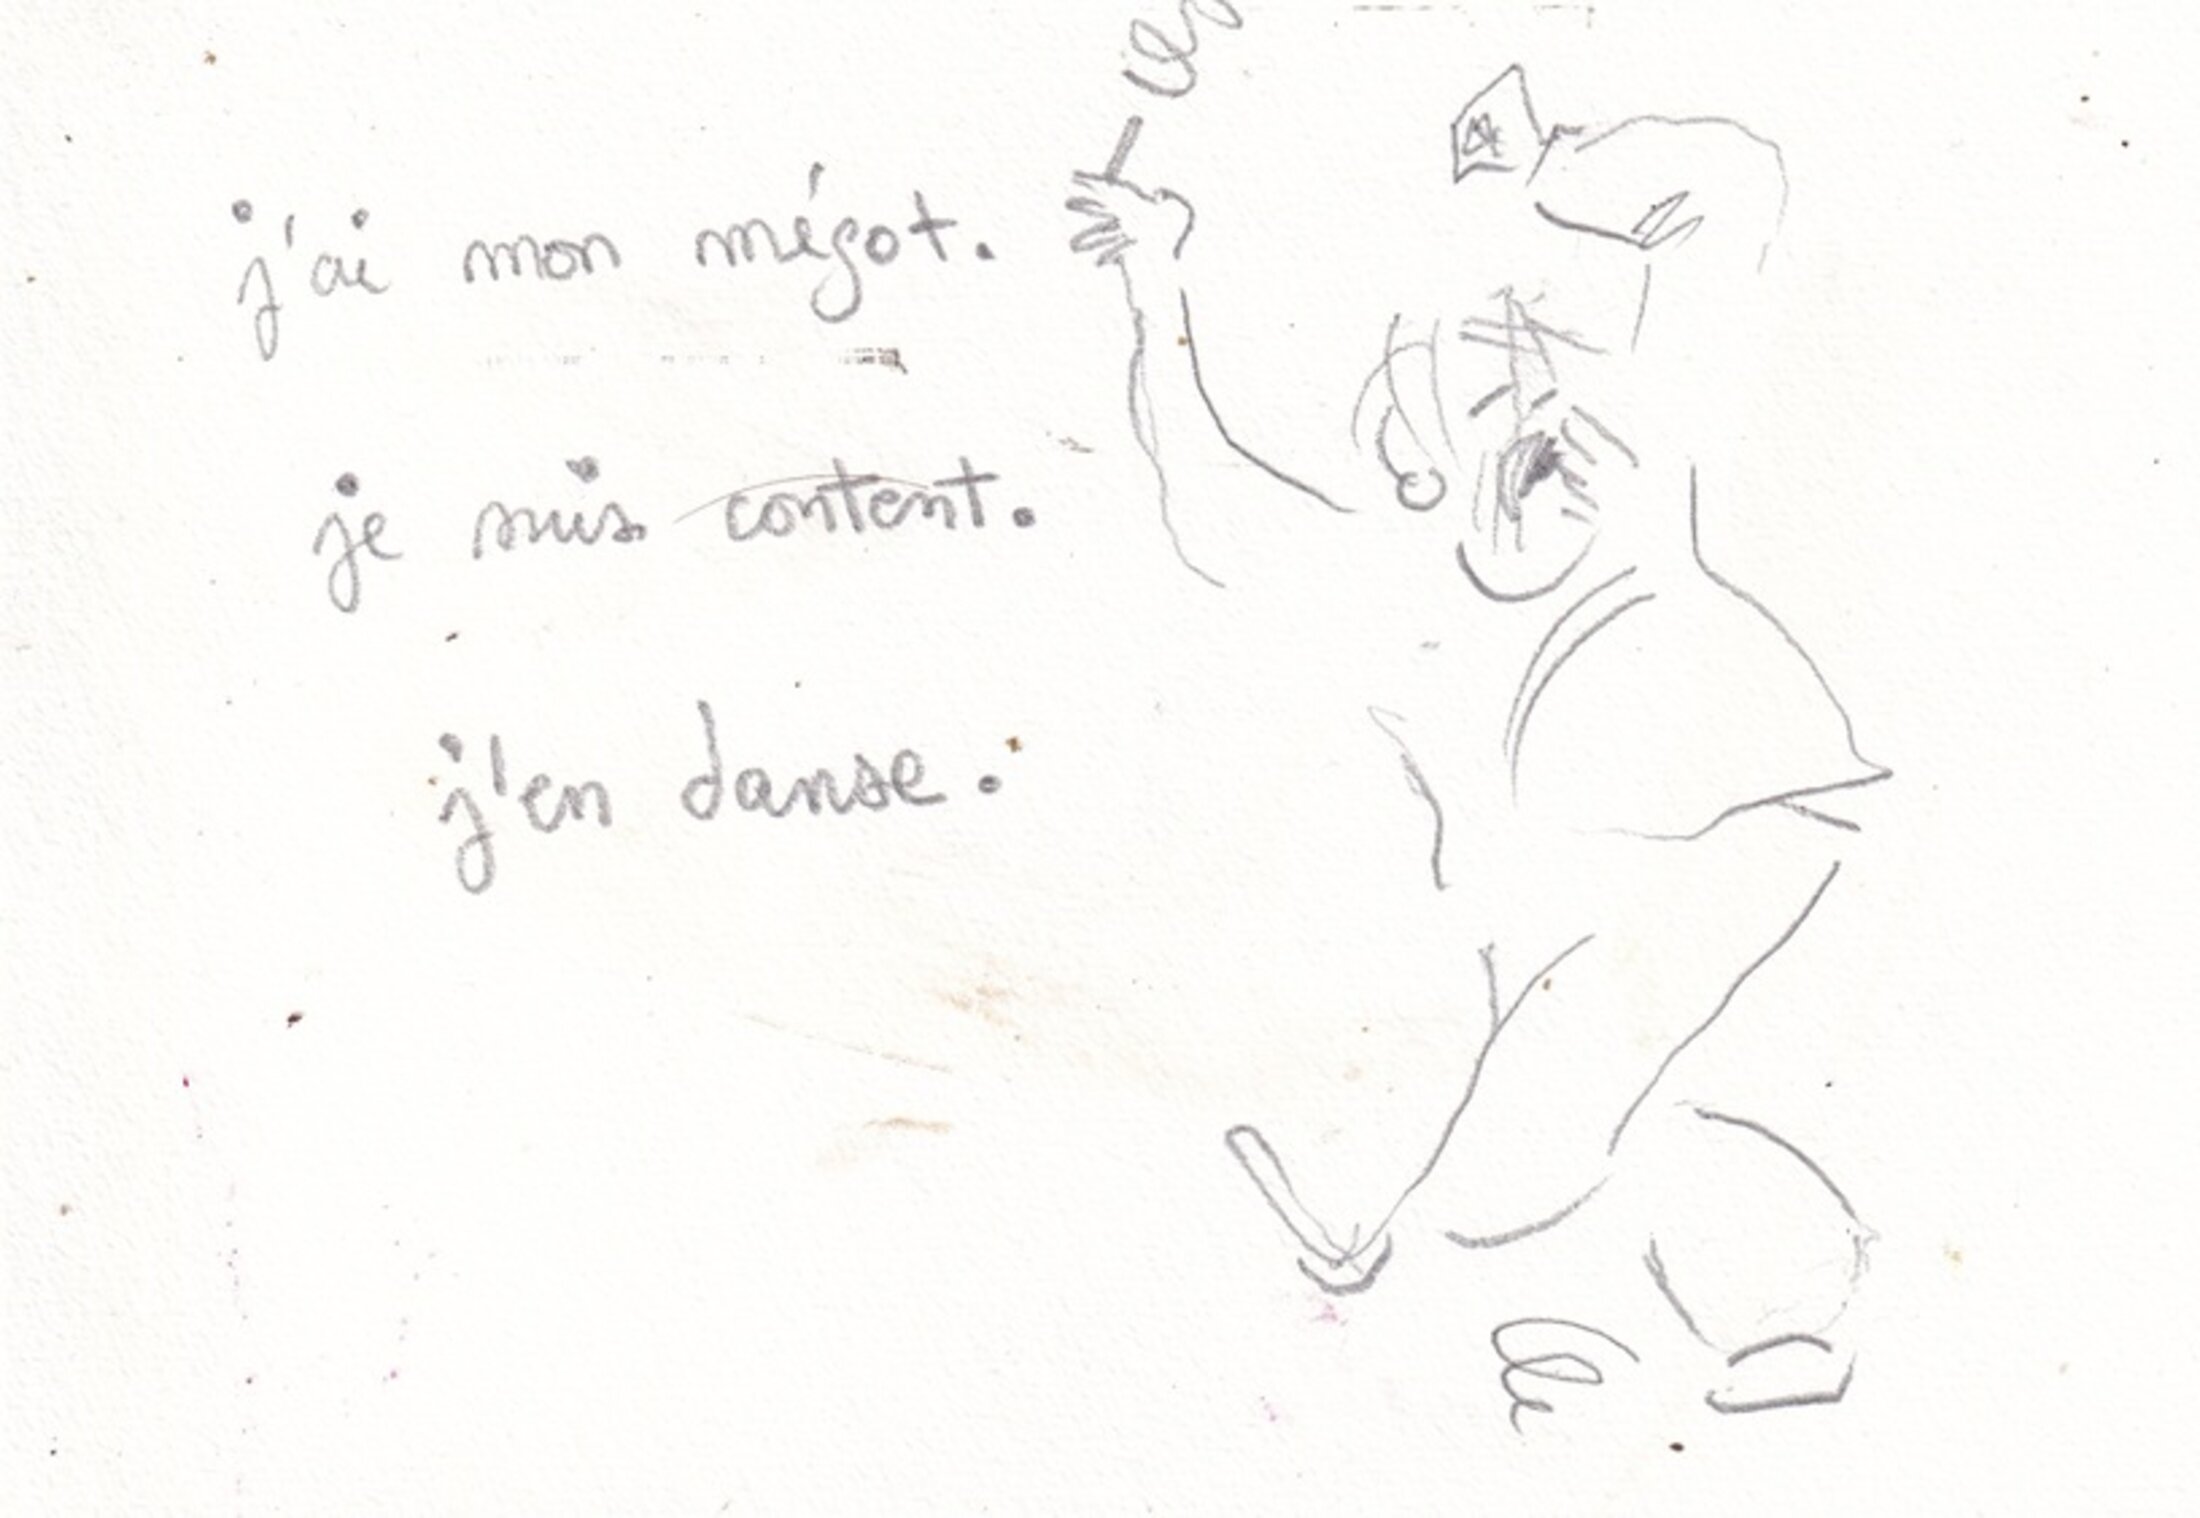 j'ai mon mégot.
je suis content.
j'en danse.